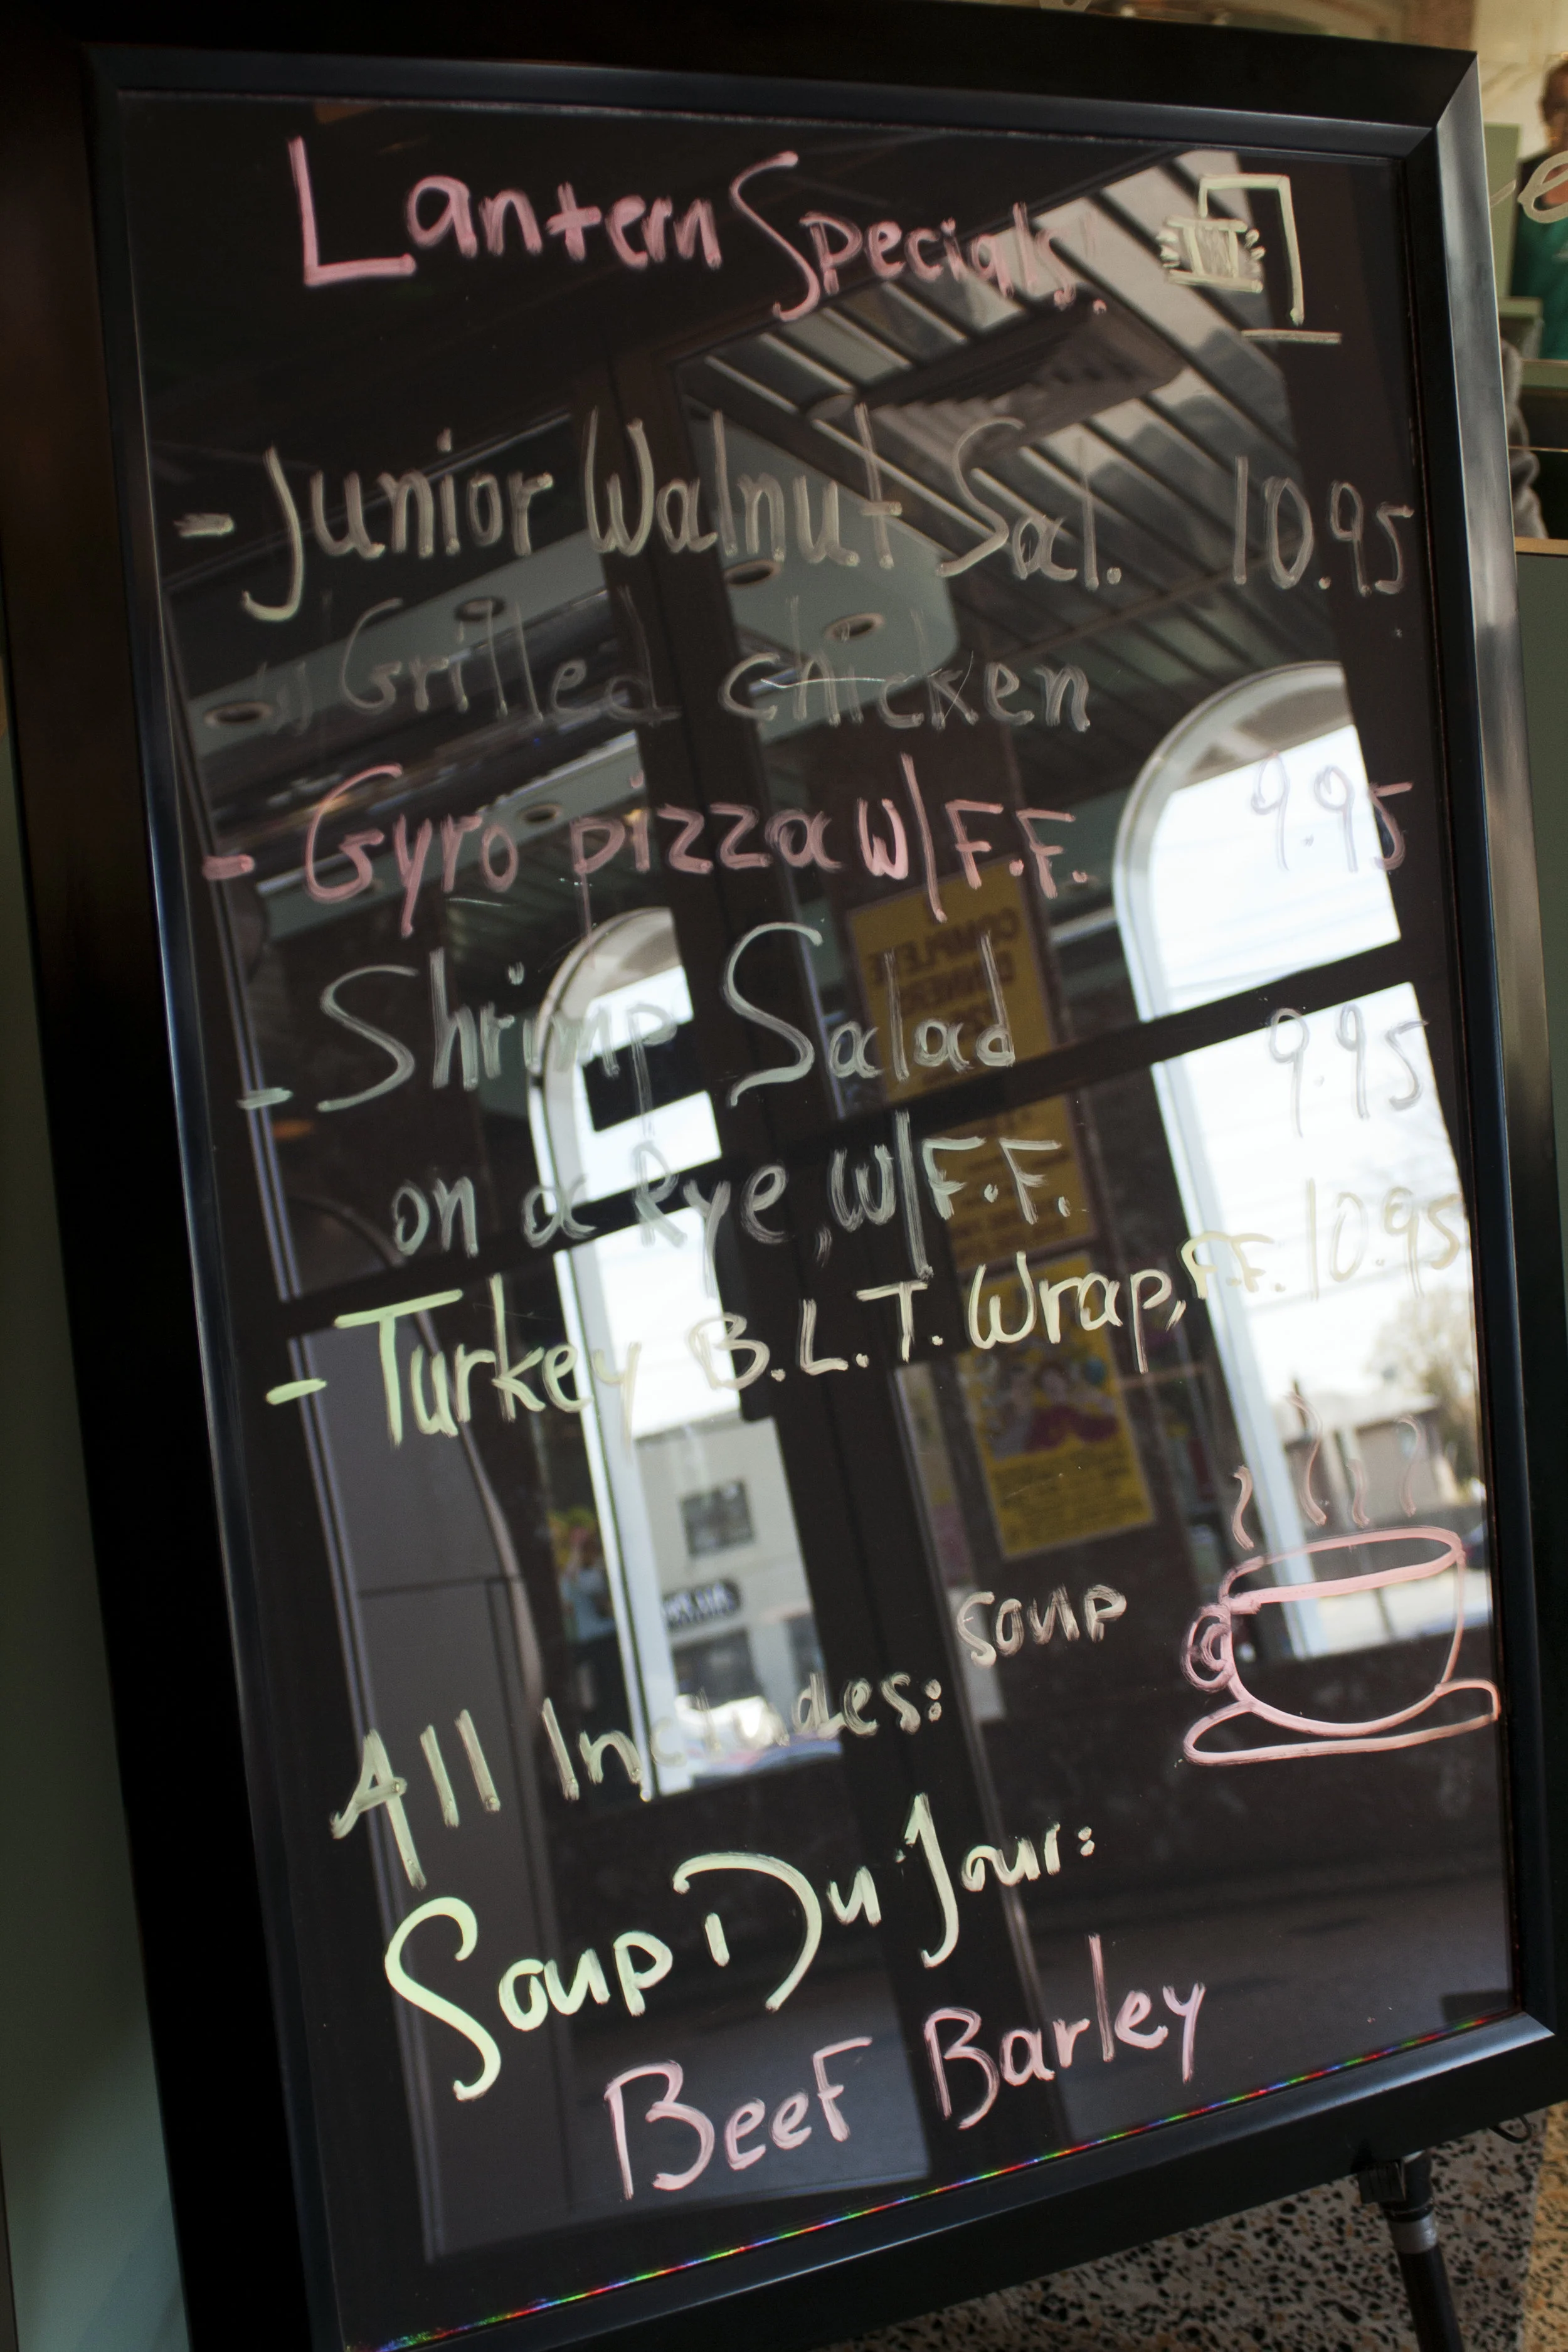 Lantern Specials!
- Junior Walnut Sal. 10.95
w/ Grilled chicken
- Gyro pizza W/F.F. 9.95
- Shrimp Salad 9.95
on a Rye, W/F.F.
- Turkey B.L.T. Wrap, F.F. 10.95
All Includes: soup
Soup Du Jour:
Beef Barley